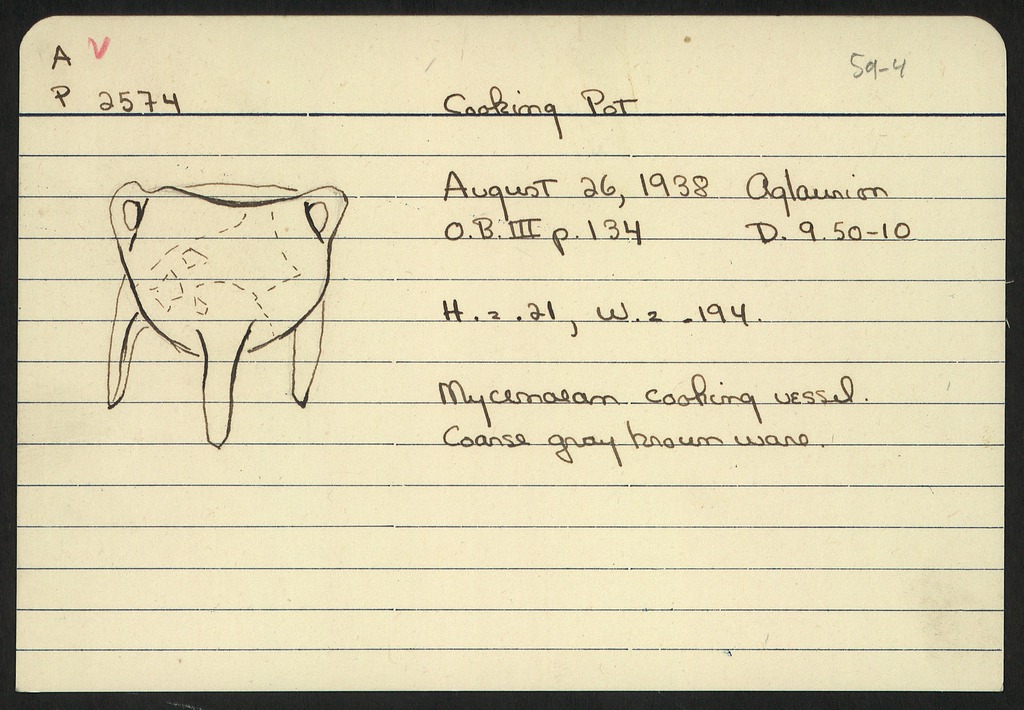 A V
59-4
P 2574
Cooking Pot
August 26, 1938 Aglaurion
O.B. III p. 134 D. 9.50-10
H. = .21, W. = .194.
Mycenaean cooking vessel.
Coarse gray brown ware.